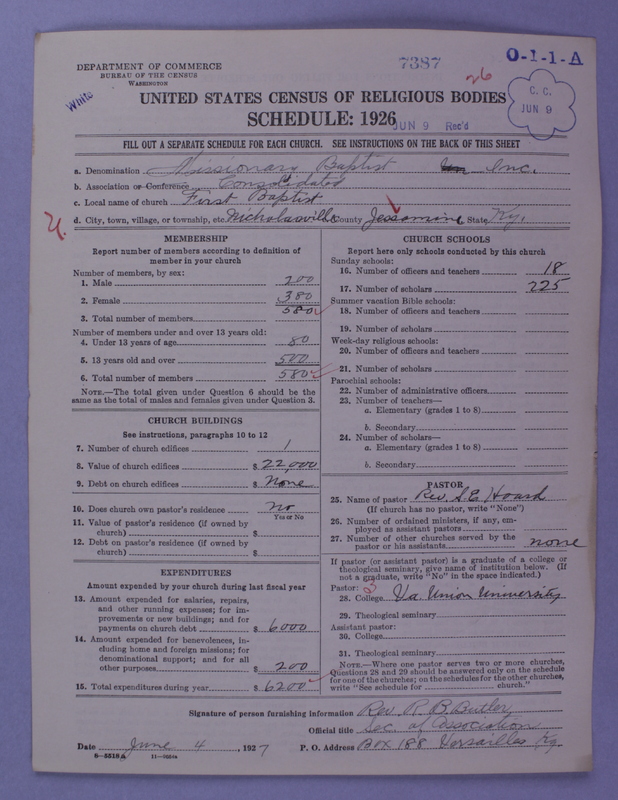 DEPARTMENT OF COMMERCE
BUREAU OF THE CENSUS
WASHINGTON
7387
26
O-1-1-A
White
C. C.
JUN 9
UNITED STATES CENSUS OF RELIGIOUS BODIES
SCHEDULE: 1926
JUN 9 Rec'd
FILL OUT A SEPARATE SCHEDULE FOR EACH CHURCH. SEE INSTRUCTIONS ON THE BACK OF THIS SHEET
a. Denomination Missionary Baptist Inc.
b. Association or Conference Consolidated
c. Local name of church First Baptist
d. City, town, village, or township, etc. Nicholasville County Jessamine State Ky.
MEMBERSHIP
Report number of members according to definition of
member in your church
Number of members, by sex:
1. Male 200
2. Female 380
3. Total number of members 580
Number of members under and over 13 years old:
4. Under 13 years of age 80
5. 13 years old and over 500
6. Total number of members 580
NOTE.—The total given under Question 6 should be the
same as the total of males and females given under Question 3.
CHURCH BUILDINGS
See instructions, paragraphs 10 to 12
7. Number of church edifices 1
8. Value of church edifices $ 22,000
9. Debt on church edifices $ None
10. Does church own pastor's residence no
Yes or No
11. Value of pastor's residence (if owned by
church) $
12. Debt on pastor's residence (if owned by
church) $
EXPENDITURES
Amount expended by your church during last fiscal year
13. Amount expended for salaries, repairs,
and other running expenses; for im-
provements or new buildings; and for
payments on church debt $ 6000
14. Amount expended for benevolences, in-
cluding home and foreign missions; for
denominational support; and for all
other purposes $ 200
15. Total expenditures during year $ 6200
CHURCH SCHOOLS
Report here only schools conducted by this church
Sunday schools:
16. Number of officers and teachers 18
17. Number of scholars 225
Summer vacation Bible schools:
18. Number of officers and teachers
19. Number of scholars
Week-day religious schools:
20. Number of officers and teachers
21. Number of scholars
Parochial schools:
22. Number of administrative officers
23. Number of teachers—
a. Elementary (grades 1 to 8)
b. Secondary
24. Number of scholars—
a. Elementary (grades 1 to 8)
b. Secondary
PASTOR
25. Name of pastor Rev. S.E. Hoard
(If church has no pastor, write "None")
26. Number of ordained ministers, if any, em-
ployed as assistant pastors
27. Number of other churches served by the
pastor or his assistants none
If pastor (or assistant pastor) is a graduate of a college or
theological seminary, give name of institution below. (If
not a graduate, write "No" in the space indicated.)
Pastor: 3
28. College Va. Union University
29. Theological seminary
Assistant pastor:
30. College
31. Theological seminary
NOTE.—Where one pastor serves two or more churches,
Questions 28 and 29 should be answered only on the schedule
for one of the churches; on the schedules for the other churches,
write "See schedule for church."
Signature of person furnishing information Rev. R. B. Butler
Official title Sec. of Association
Date June 4, 1927 P. O. Address Box 188 Versailles Ky.
8-5518 A 11-9054a